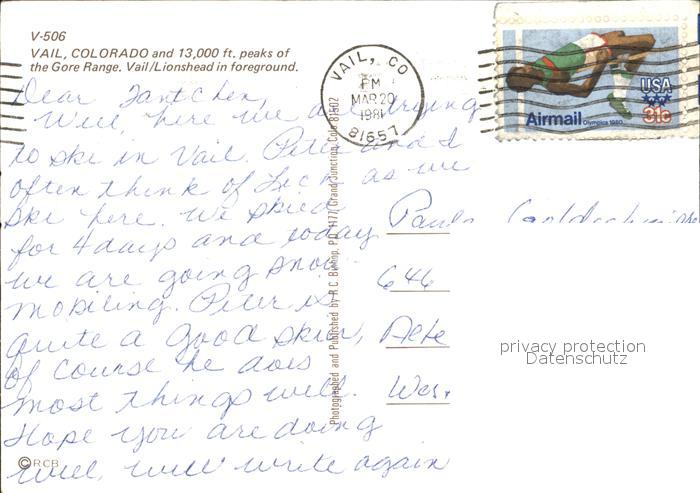 V-506
VAIL, COLORADO and 13,000 ft. peaks of
the Gore Range. Vail/Lionshead in foreground.
Dear Tantchen,
Well, here we are trying
to ski in Vail. Peter and I
often think of Lech as we
ski here. We skied
for 4 days and today
we are going snow
mobiling. Peter is
quite a good skier,
of course he does
most things well.
Hope you are doing
well, will write again
©RCB
Photographed and Published by R.C. Bishop, P.O. 1177, Grand Junction, Colo. 81502
VAIL, CO
PM
MAR 20
1981
81657
USA
31c
Airmail Olympics 1980
Paula
646
Wes
privacy protection
Datenschutz